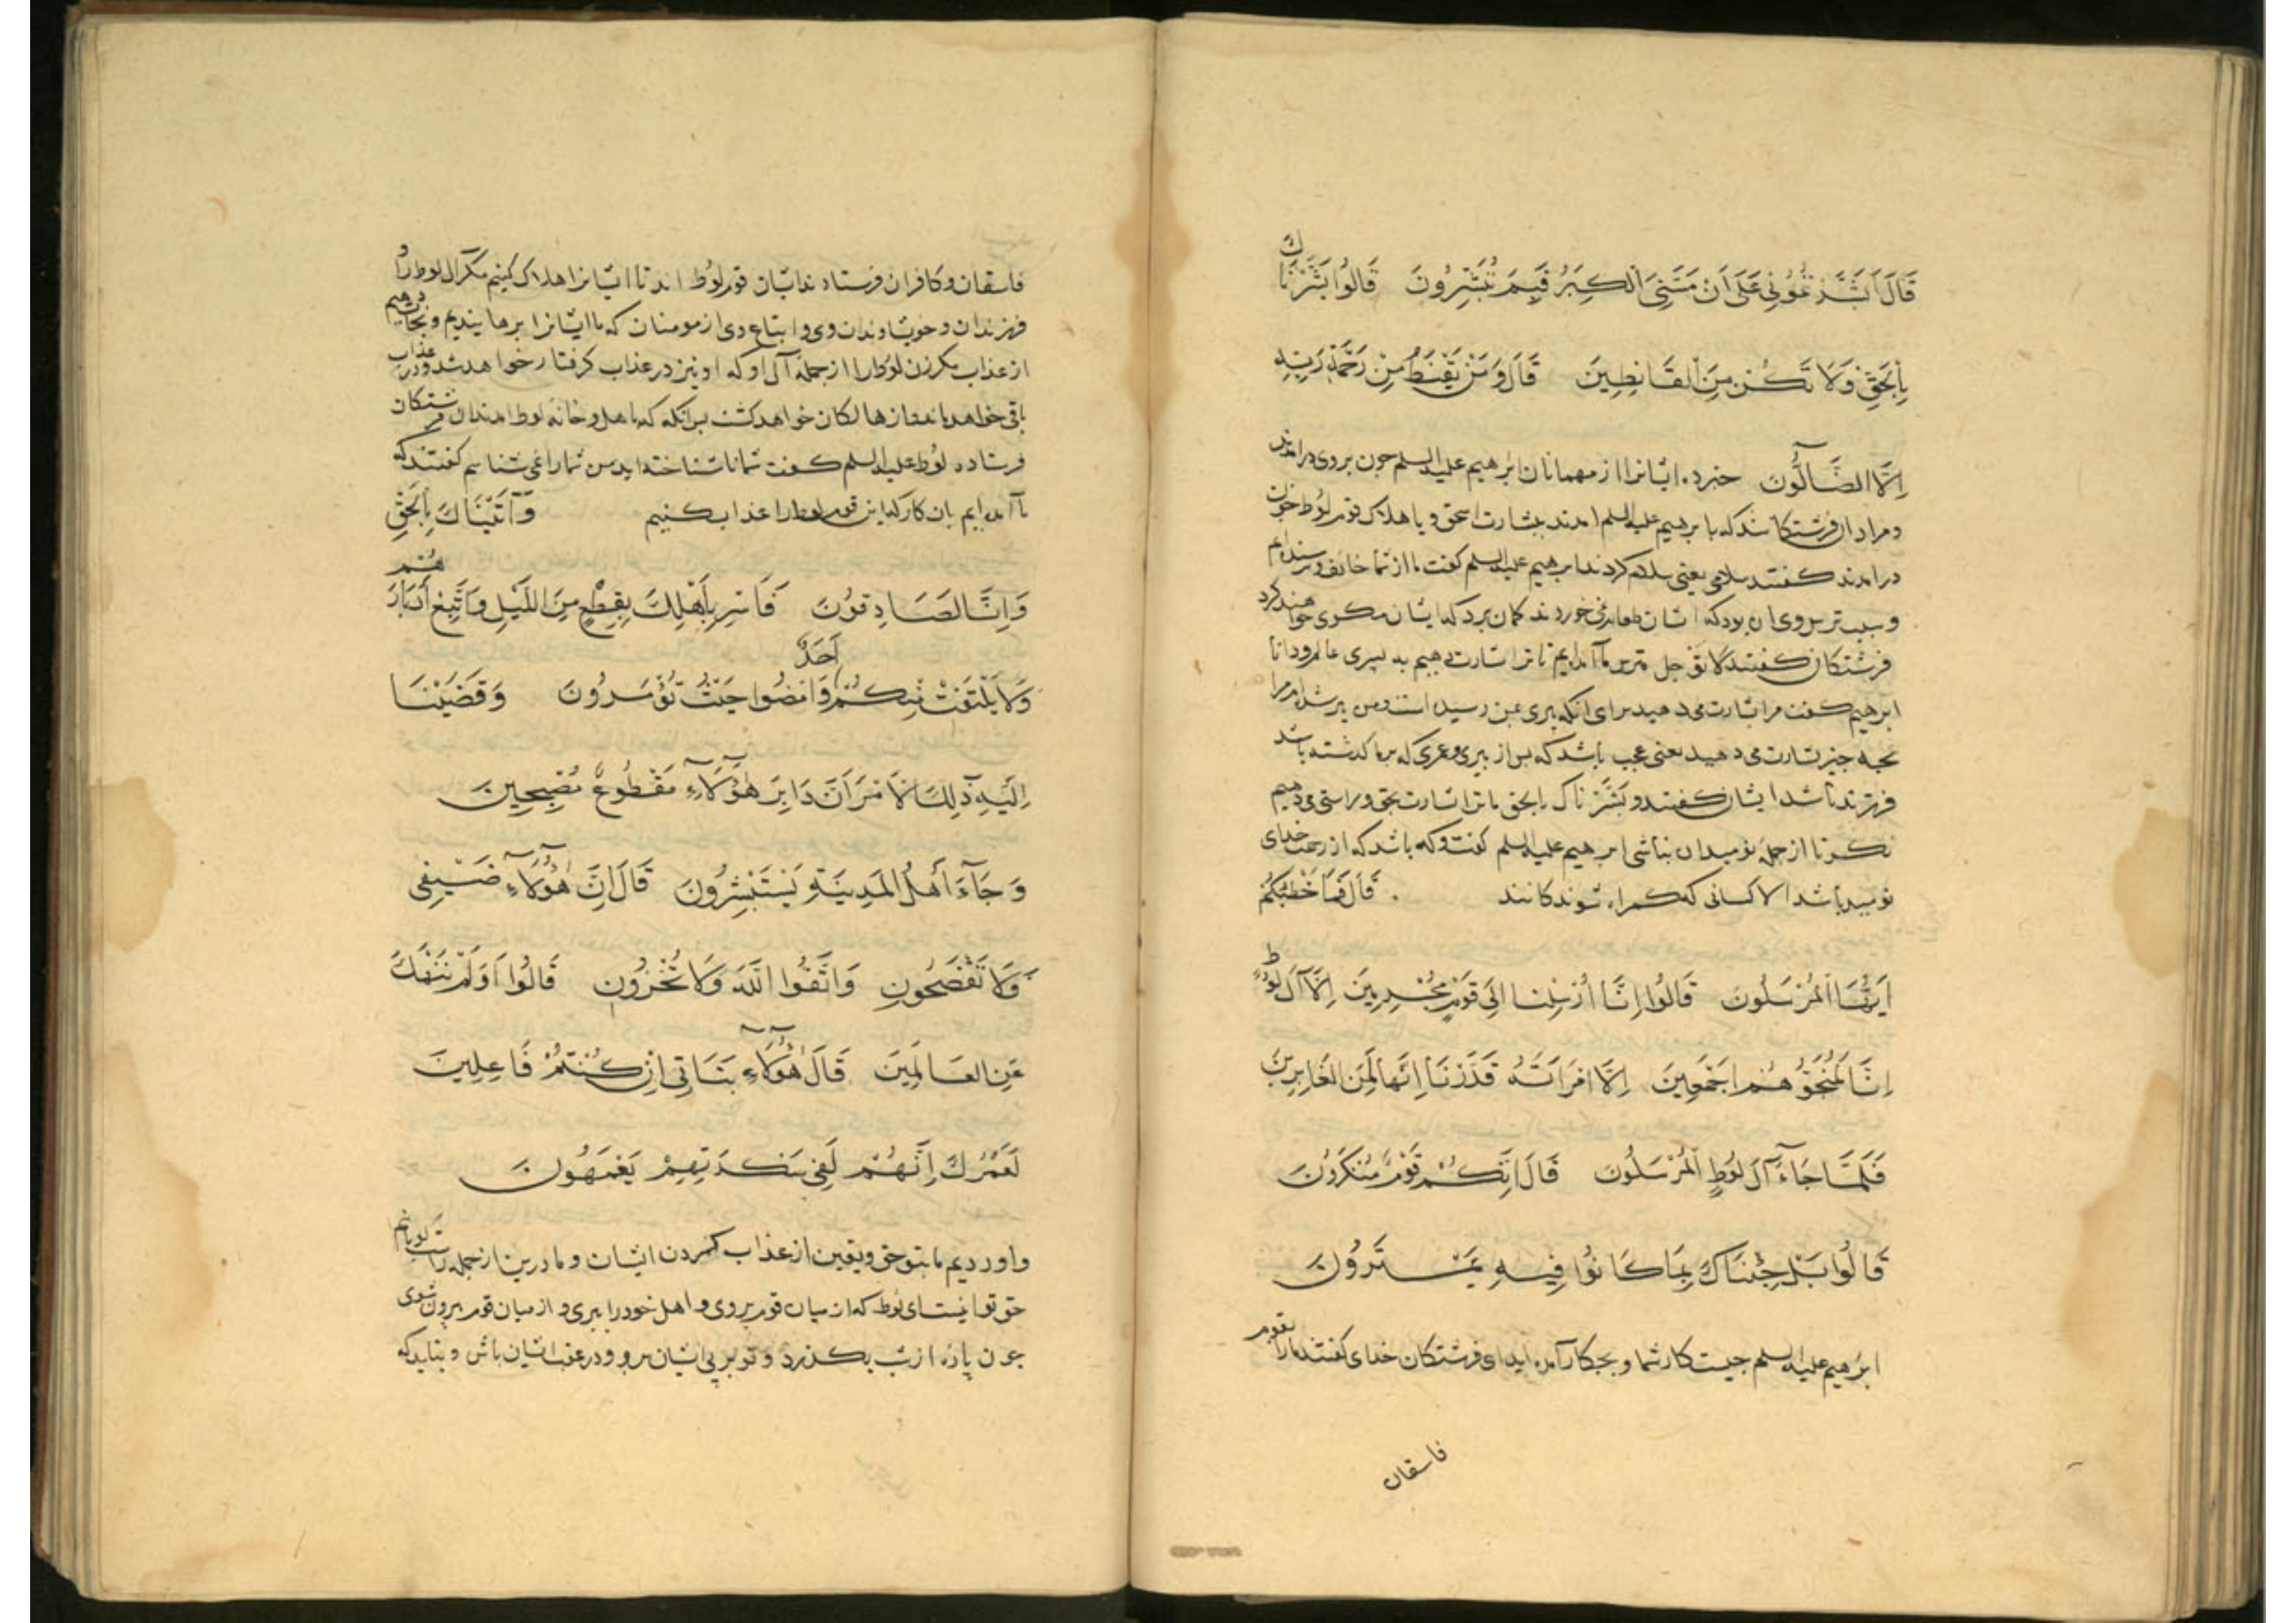 قَالَ اَبَشَّرْتُمُونِي عَلَى اَنْ مَسَّنِيَ الْكِبَرُ فَبِمَ تُبَشِّرُونَ قَالُوا بَشَّرْنَاكَ
بِالْحَقِّ فَلَا تَكُنْ مِنَ الْقَانِطِينَ قَالَ وَمَنْ يَقْنَطُ مِنْ رَحْمَةِ رَبِّهِ
اِلَّا الضَّآلُّونَ خبر ده ایشانرا از مهمانان ابرهیم علیه السلم جون بروی درامدند
ومراد ان فرشتکانند که با برهیم علیه السلم امدند ببشارت اسحق و یا هلاک قوم لوط جون
درامدند کفتند سلامی یعنی سلام کردند ابرهیم علیه السلم کفت ما از شما خائف وترسنده ام
وسبب ترس وی ان بود که ایشان طعام نمی خوردند کمان برد که ایشان مکوی خواهند کرد
فرشتکان کفتند لا توجل مترس ما امده ایم تا ترا بشارت دهیم به پسری عالم ودانا
ابرهیم کفت مرا بشارت می دهید برای انکه پیری بمن رسیده است ومن پیر شده ام مرا
بجه جیز بشارت می دهید یعنی عجب باشد که پس از پیری وعمری که برما کذشته باشد
فرزند باشد ایشان کفتند و بَشَّرناک بالحق ما ترا بشارت بحق وراستی می دهیم
نکر تا از جمله نومیدان نباشی ابرهیم علیه السلم کفت وکه باشد که از رحمت خدای
نومید باشد الا کسانی که کمراه شوندکانند قَالَ فَمَا خَطْبُكُمْ
اَيُّهَا الْمُرْسَلُونَ قَالُوا اِنَّا اُرْسِلْنَا اِلَى قَوْمٍ مُجْرِمِينَ اِلَّا آلَ لُوطٍ
اِنَّا لَمُنَجُّوهُمْ اَجْمَعِينَ اِلَّا امْرَاَتَهُ قَدَّرْنَا اِنَّهَا لَمِنَ الْغَابِرِينَ
فَلَمَّا جَآءَ آلَ لُوطٍ الْمُرْسَلُونَ قَالَ اِنَّكُمْ قَوْمٌ مُنْكَرُونَ
قَالُوا بَلْ جِئْنَاكَ بِمَا كَانُوا فِيهِ يَمْتَرُونَ
ابرهیم علیه السلم جیست کار شما و بجکار آمده اید ای فرشتکان خدای کفتند مارا بقوم
فاسقان
فاسقان وکافران فرستاده اند قوم لوط اند تا ایشانرا هلاک کنیم مکر آل لوط را و
فرزندان و خویشاوندان وی و اتباع وی از مومنان که ما ایشانرا برهانیدیم ونجات دهیم
از عذاب مکر زن لوط را از جمله آل او که او نیز در عذاب کرفتار خواهد شد ودر عذاب
باقی خواهد ماند از هالکان خواهد کشت پس انکه که باهل وخانه لوط امدند ان فرشتکان
فرستاده لوط علیه السلم کفت شما ناشناخته اید من شمارا نمی شناسم کفتند که
ما آمده ایم بان کار که این قوم لوط را عذاب کنیم وَآتَيْنَاكَ بِالْحَقِّ
وَاِنَّا لَصَادِقُونَ فَاَسْرِ بِاَهْلِكَ بِقِطْعٍ مِنَ اللَّيْلِ وَاتَّبِعْ اَدْبَارَهُمْ
وَلَا يَلْتَفِتْ مِنْكُمْ اَحَدٌ وَامْضُوا حَيْثُ تُؤْمَرُونَ وَقَضَيْنَا
اِلَيْهِ ذٰلِكَ الْاَمْرَ اَنَّ دَابِرَ هٰؤُلَآءِ مَقْطُوعٌ مُصْبِحِينَ
وَجَآءَ اَهْلُ الْمَدِينَةِ يَسْتَبْشِرُونَ قَالَ اِنَّ هٰؤُلَآءِ ضَيْفِي
فَلَا تَفْضَحُونِ وَاتَّقُوا اللَّهَ وَلَا تُخْزُونِ قَالُوا اَوَلَمْ نَنْهَكَ
عَنِ الْعَالَمِينَ قَالَ هٰؤُلَآءِ بَنَاتِي اِنْ كُنْتُمْ فَاعِلِينَ
لَعَمْرُكَ اِنَّهُمْ لَفِي سَكْرَتِهِمْ يَعْمَهُونَ
واوردیم ما بتو حق ویقین از عذاب کردن ایشان وما درین از جمله راست کویانیم
حق توانیست ای لوط که از میان قوم بروی و اهل خود را ببری و از میان قوم بیرون شوی
جون پاره از شب بکذرد و تو بر پی ایشان برو ودر عقب ایشان باش و نباید که